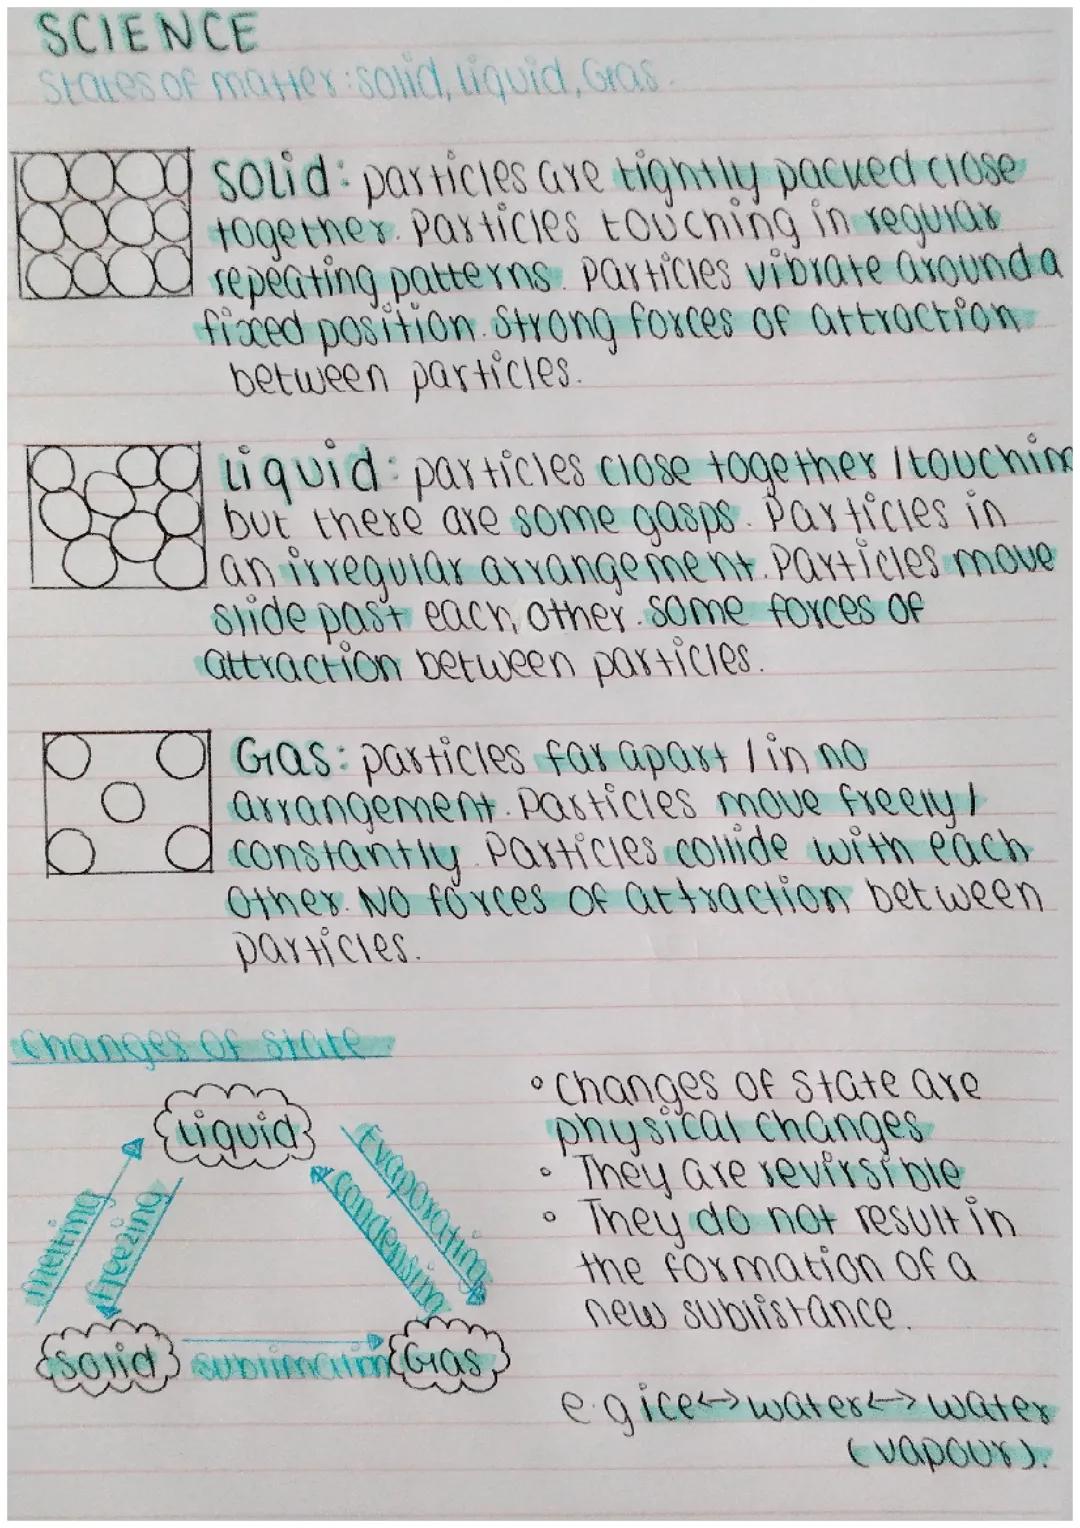 SCIENCE
States of matter: solid, liquid, Gas.
SOLid: particles are tightly packed close
together. Particles touching in regular
repeating patterns. Particles vibrate around a
fixed position. Strong forces of attraction
between particles.
Liquid: particles close together / touching
but there are some gasps. Particles in
an irregular arrangement. Particles move
slide past each other. Some forces of
attraction between particles.
Gas: particles far apart / in no
arrangement. Particles move freely /
constantly. Particles collide with each
other. No forces of attraction between
particles.
Changes of state
Liquid
melting
freezing
Evaporating
condensing
Solid
sublimation
Gas
° Changes of state are
physical changes
° They are revirsible
° They do not result in
the formation of a
new sublistance.
e.g ice <-> water <-> water
(vapour).